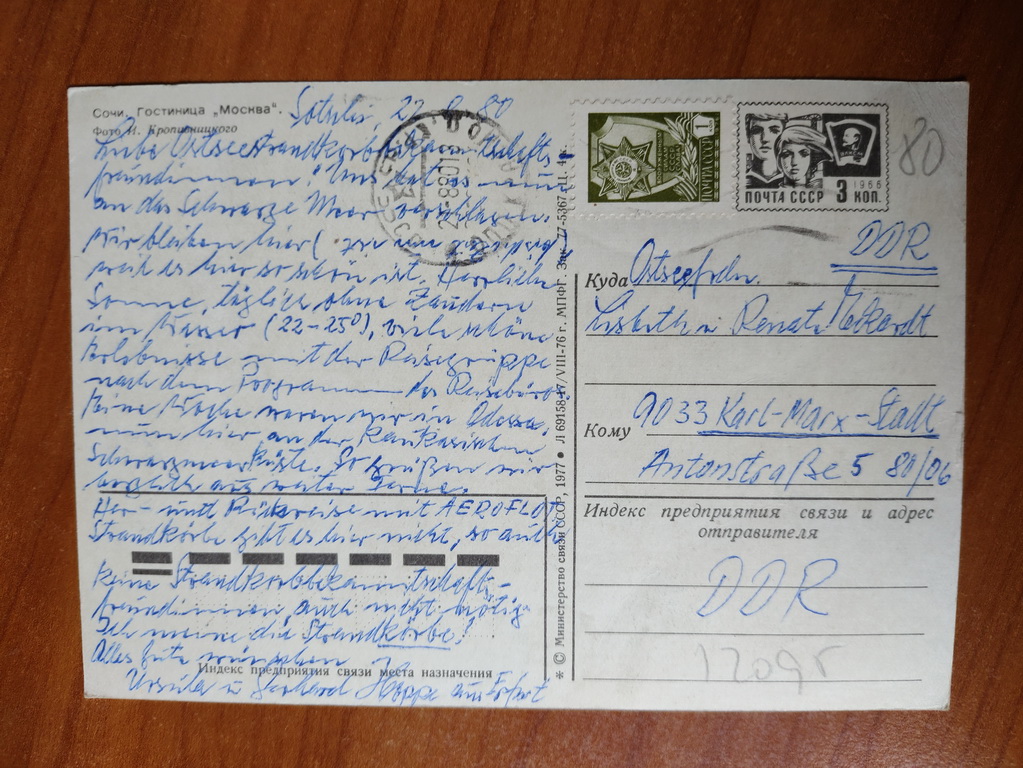 Сочи. Гостиница „Москва".
Фото И. Кропивницкого
Sotschi, 22. 8. 80
Liebe Ostseestrandkorbbekanntschafts-
freundinnen! Uns hat es nun
an das Schwarze Meer verschlagen.
Wir bleiben hier
weil es hier so schön ist. Herrliche
Sonne, täglich ohne Zaudern
im Wasser (22-25°), viele schöne
Erlebnisse mit der Reisegruppe
nach dem Programm des Reisebüros.
Eine Woche waren wir in Odessa,
nun hier an der Kaukasischen
Schwarzmeerküste. So grüßen wir
herzlich aus weiter Ferne.
Her- und Rückreise mit AEROFLOT
Strandkörbe gibt es hier nicht, so auch
keine Strandkorbbekanntschafts-
freundinnen, auch nicht nötig
Ich meine die Strandkörbe!
Alles Gute wünschen
Индекс предприятия связи места назначения
Ursula u. Gerhard Hoppe aus Erfurt
* © Министерство связи СССР, 1977 ● Л 69158 17/VIII-76 г. МПФГ. Зак. 77-5367. Ц. 4 к.
ПОЧТА СССР
1966
3 КОП.
80
DDR
Куда Ostseefrdn.
Lisbeth u. Renate Eckardt
Кому 9033 Karl-Marx-Stadt
Antonstraße 5 80/06
Индекс предприятия связи и адрес
отправителя
DDR
1209г